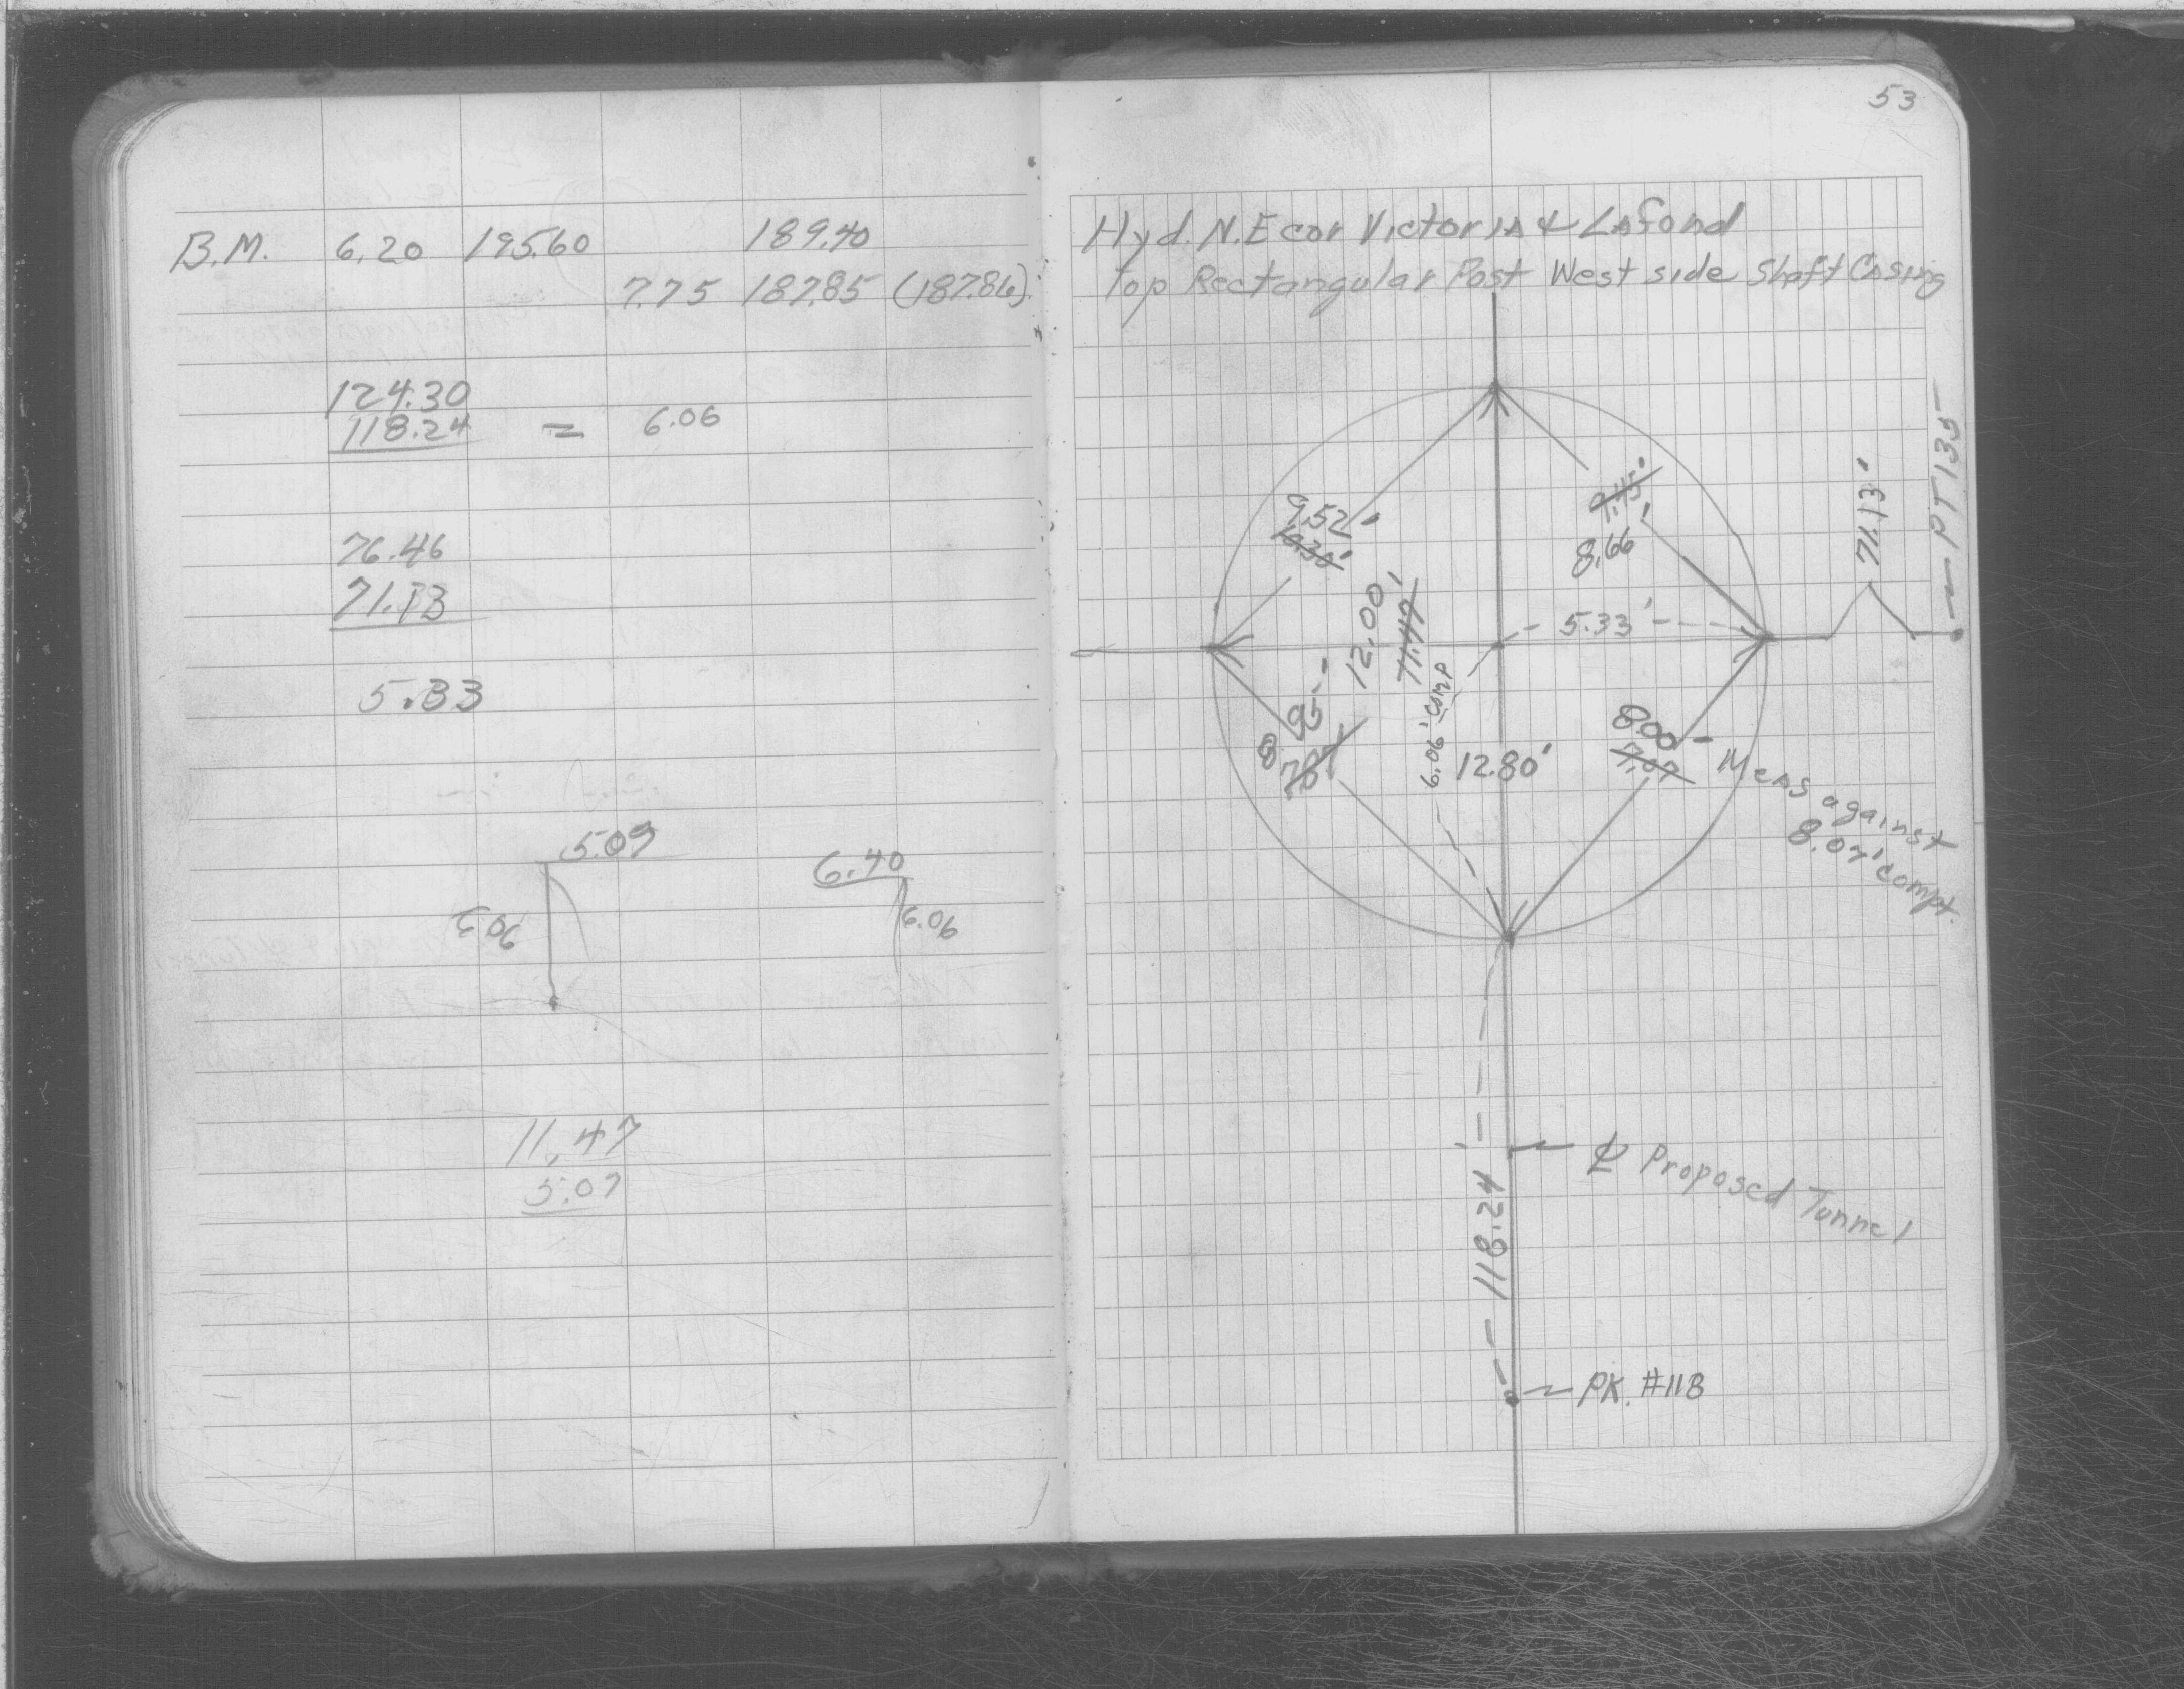 B.M. 6.20 195.60 189.40
7.75 187.85 (187.86)
124.30
118.24 = 6.06
76.46
71.13
5.33
5.09
6.06
6.40
6.06
11.47
5.07
53
Hyd. N.E cor Victoria & Lafond
Top Rectangular Post West side Shaft Casing
9.52'
10.30'
9.45'
8.66'
71.13'
PT 135
12.00'
11.47
5.33'
6.06' comp
12.80'
8.00'
7.07
Meas against
8.07' compt.
118.24'
℄ Proposed Tunnel
PK. #118